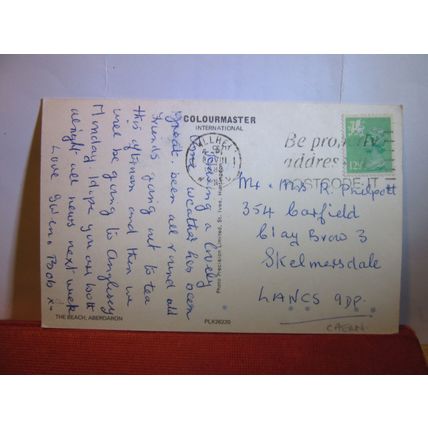 COLOURMASTER
INTERNATIONAL
Having a lovely
time weather has been
great. been all round old
friends going out to tea
this afternoon and then we
will be going to Anglesey
Monday. Hope you are both
alright will news next week
Love Gwen, Bob x
THE BEACH, ABERDARON
PLX26220
Photo Precision Limited, St. Ives,
PWLLHELI
Be properly
addressed
POSTCODE IT
12½
Mr. Mrs R. Philpott
354 Carfield
Clay Brow 3
Skelmersdale
LANCS 9DP.
CAERN